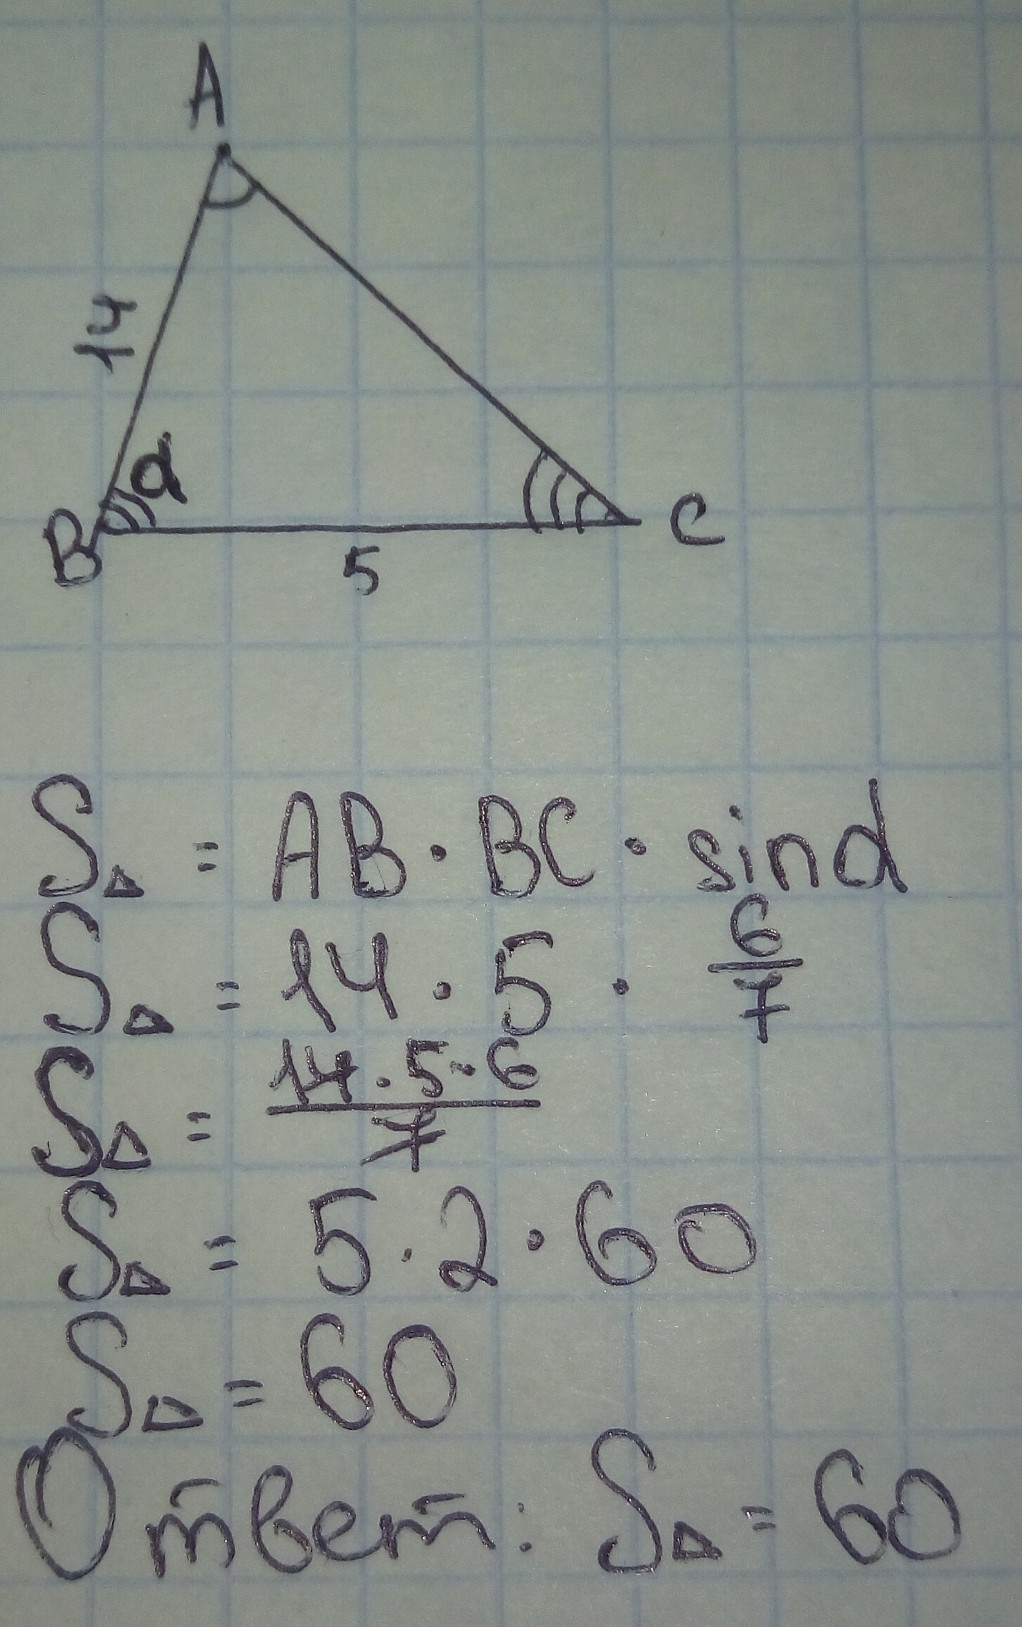 A
14
α
B
C
5
S△ = AB · BC · sinα
S△ = 14 · 5 · 6/7
S△ = 14 · 5 · 6/7
S△ = 5 · 2 · 60
S△ = 60
Ответ: S△ = 60